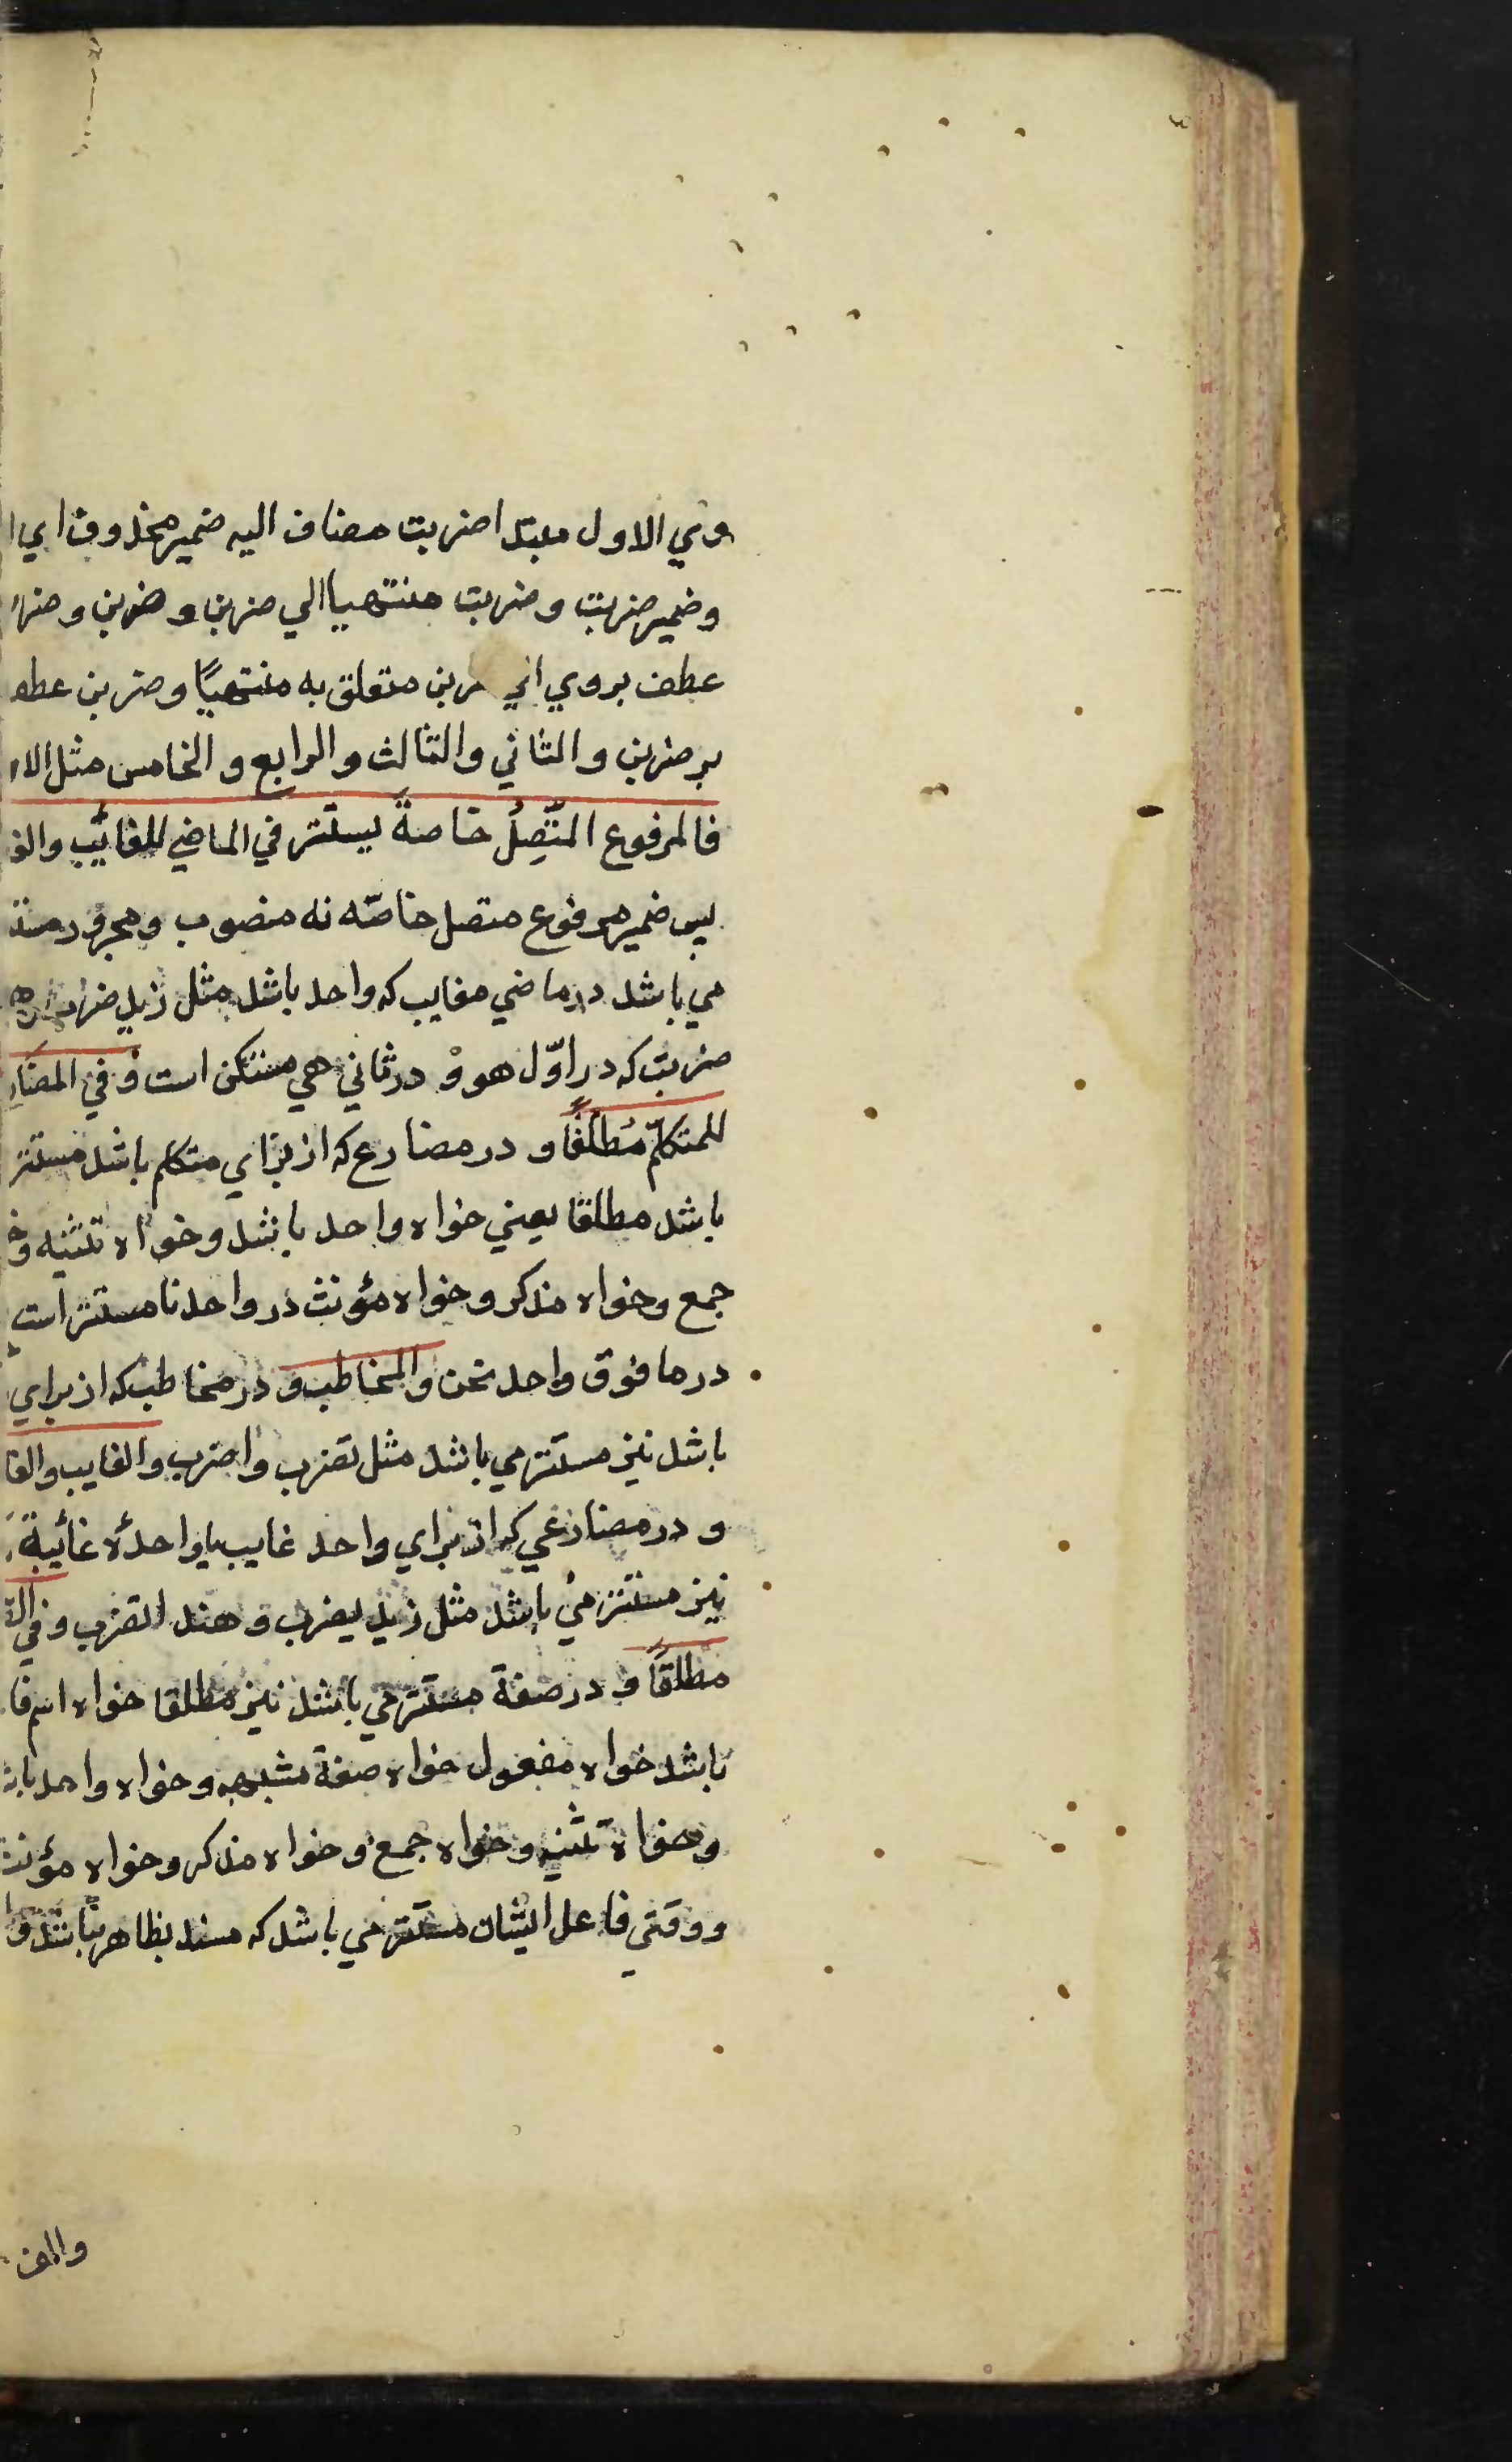 وي الاول مبتدا ضربت مضاف اليه ضمير محذوف اي
وضمير ضربت وضربت منتهيا الي ضربن وضربن
عطف بروي الي متعلق به منتهيًا وضربن
بر ضربن والثاني والثالث والرابع والخامس مثل
فالمرفوع المتّصِلُ خاصةً يستتر في الماضي للغائب
پس ضمير مرفوع متصل خاصّه نه منصوب ومجرور
مي باشد در ماضي مغايب كه واحد باشد مثل زيد ضرب
ضربت كه در اوّل هو و در ثاني هي مستكن است وفي
للمتكلّم مُطلقًا و در مضارع كه از براي متكلم باشد مستتر
باشد مطلقا يعني خواه واحد باشد وخواه تثنيه
جمع وخواه مذكر وخواه مؤنث در واحد انا مستتر است
در ما فوق واحد نحن والمخاطب و در مخاطب كه از براي
باشد نيز مستتر مي باشد مثل تضرب واضرب والغايب
و در مضارعي كه از براي واحد غايب يا واحدهٔ غائبة
نيز مستتر مي باشد مثل زيد يضرب و هند تضرب وفي
مطلقًا و در صفة مستتر مي باشد نيز مطلقا خواه اسم
باشد خواه مفعول خواه صفة مشبهه وخواه واحد
وخواه تثنيه وخواه جمع وخواه مذكر وخواه مؤنث
ووقتي فاعل ايشان مستتر مي باشد كه مسند بظاهر نباشد